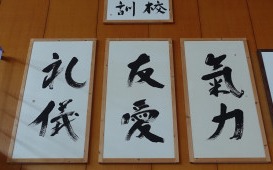 校訓
氣力
友愛
礼儀